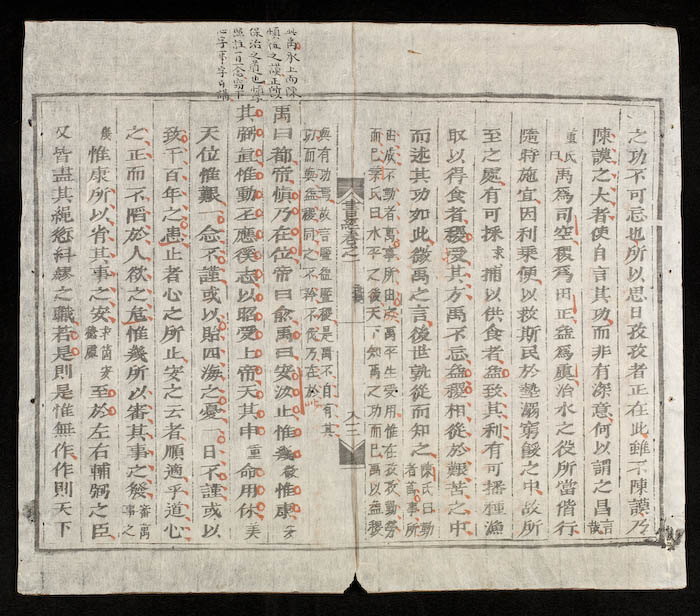 之功不可忘也所以思日孜孜者正在此雖不陳謨乃
陳謨之大者使自言其功而非有深意何以謂之昌言哉
董氏曰禹為司空稷為田正益為虞治水之役所當偕行
隨時施宜因利乘便以救斯民於墊溺窮餒之中故所
至之處有可採求捕以供食者益致其利有可播種漁
取以得食者稷受其方禹不忘益稷相從於艱苦之中
而述其功如此微禹之言後世孰從而知之陳氏曰勤者萬事所
由成不勤者萬事所由廢禹平生受用惟在孜孜勤勞
而已葉氏曰水平之後天下知禹之功而已禹以益稷
書經卷之一
益稷
八三
與有功焉故言暨益暨稷是禹不自有其
功而與益稷同之不矜不伐乃在於此
此禹承上而陳
慎位之謨正啟
保治之道也慎字
照註一日一念
禹曰都帝慎乃在位帝曰俞禹曰安汝止惟幾微惟康安
其弼直惟動丕應徯志以昭受上帝天其申重命用休美
天位惟艱一念不謹或以貽四海之憂一日不謹或以
致千百年之患止者心之所止安之云者順適乎道心
之正而不陷於人欲之危惟幾所以審其事之幾審萬事之
幾惟康所以省其事之安求箇安穩處至於左右輔弼之臣
又皆盡其繩愆糾繆之職若是則是惟無作作則天下